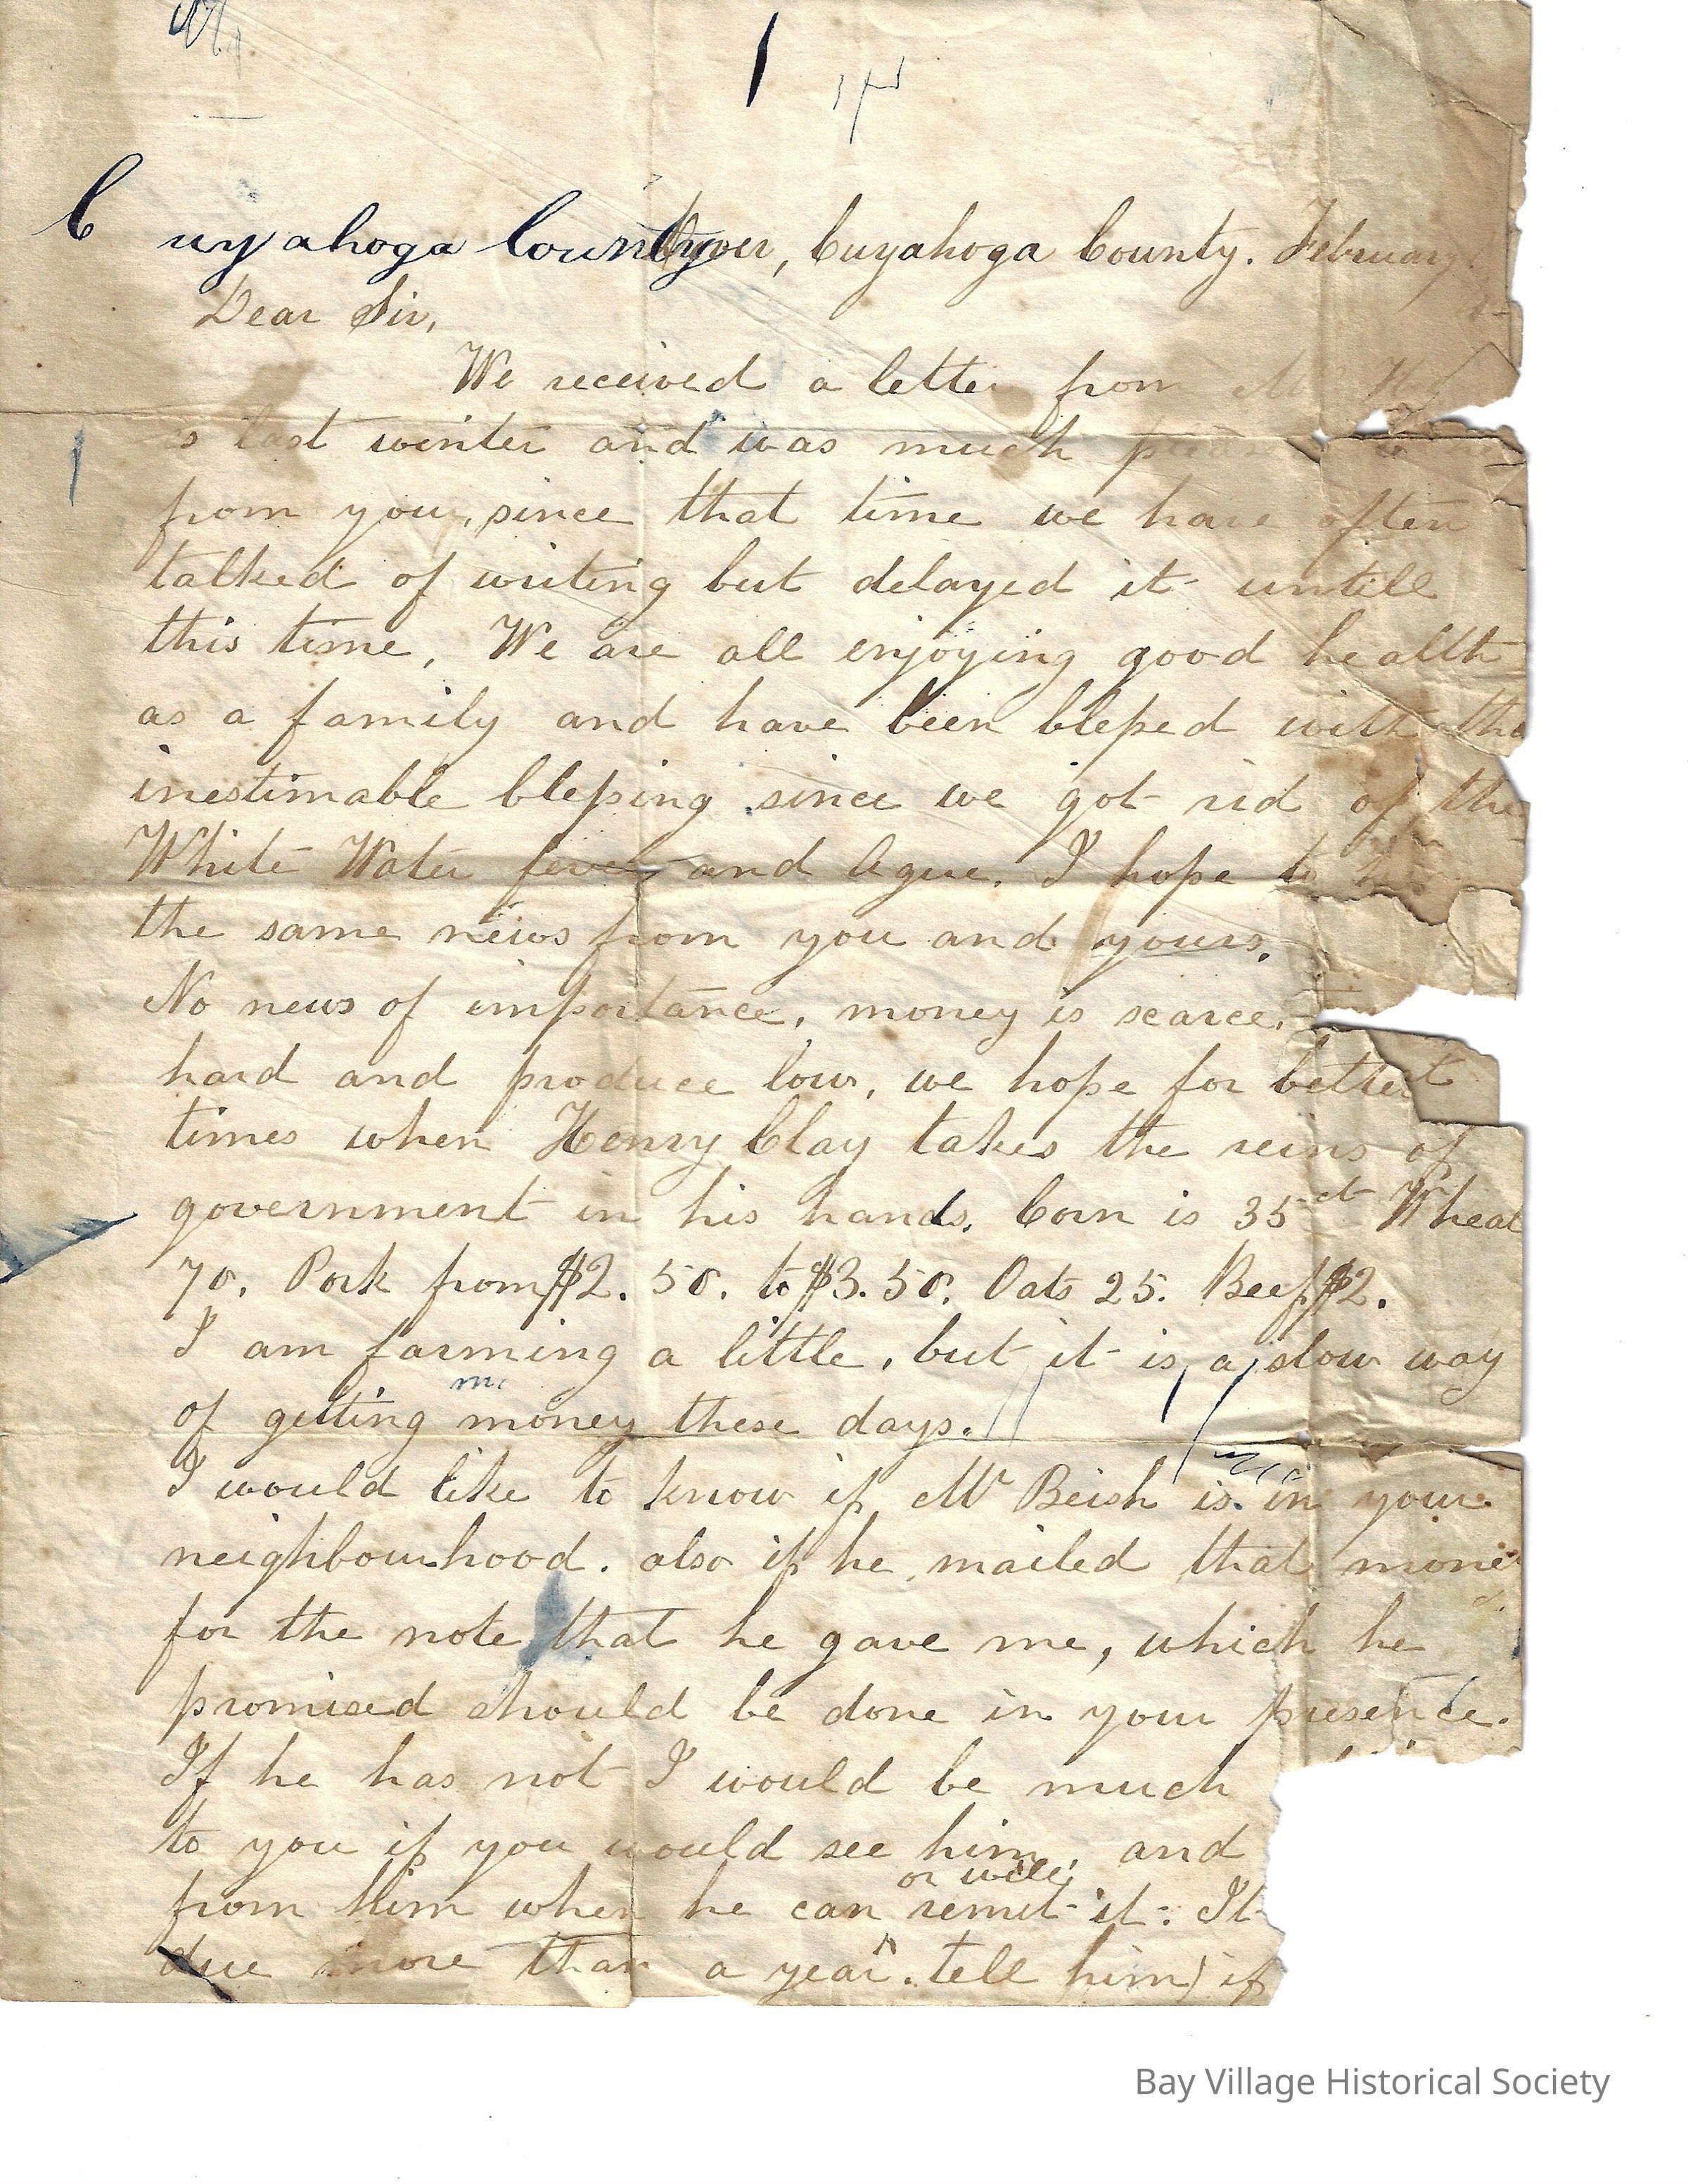 Cuyahoga County
Dover, Cuyahoga County. February
Dear Sir,
We received a letter from
last winter and was much
from you, since that time we have often
talked of writing but delayed it untill
this time. We are all enjoying good health
as a family and have been blessed with the
inestimable blessing since we got rid of the
White Water fever and Ague. I hope to
the same news from you and yours.
No news of importance, money is scarce,
hard and produce low, we hope for better
times when Henry Clay takes the reins of
government in his hands. Corn is 35 ct Wheat
70. Pork from $2.50. to $3.50. Oats 25. Beef $2.
I am farming a little, but it is a slow way
of getting money these days.
I would like to know if Mr Beish is in your
neighbourhood. also if he mailed that mone
for the note that he gave me, which he
promised should be done in your presence.
If he has not I would be much
to you if you would see him, and
or will
from him when he can remit it: It
due more than a year. tell him, if
Bay Village Historical Society